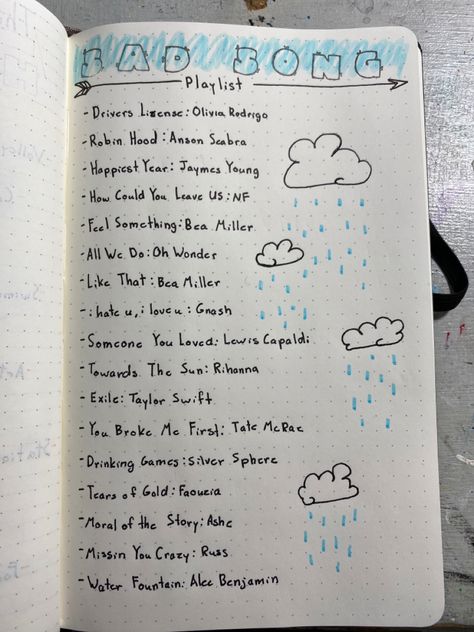 SAD SONG
Playlist
- Drivers License: Olivia Rodrigo
- Robin Hood: Anson Seabra
- Happiest Year: Jaymes Young
- How Could You Leave Us: NF
- Feel Something: Bea Miller
- All We Do: Oh Wonder
- Like That: Bea Miller
- i hate u, i love u: Gnash
- Someone You Loved: Lewis Capaldi
- Towards The Sun: Rihanna
- Exile: Taylor Swift
- You Broke Me First: Tate McRae
- Drinking Games: Silver Sphere
- Tears of Gold: Faouzia
- Moral of the Story: Ashe
- Missin You Crazy: Russ
- Water Fountain: Alec Benjamin